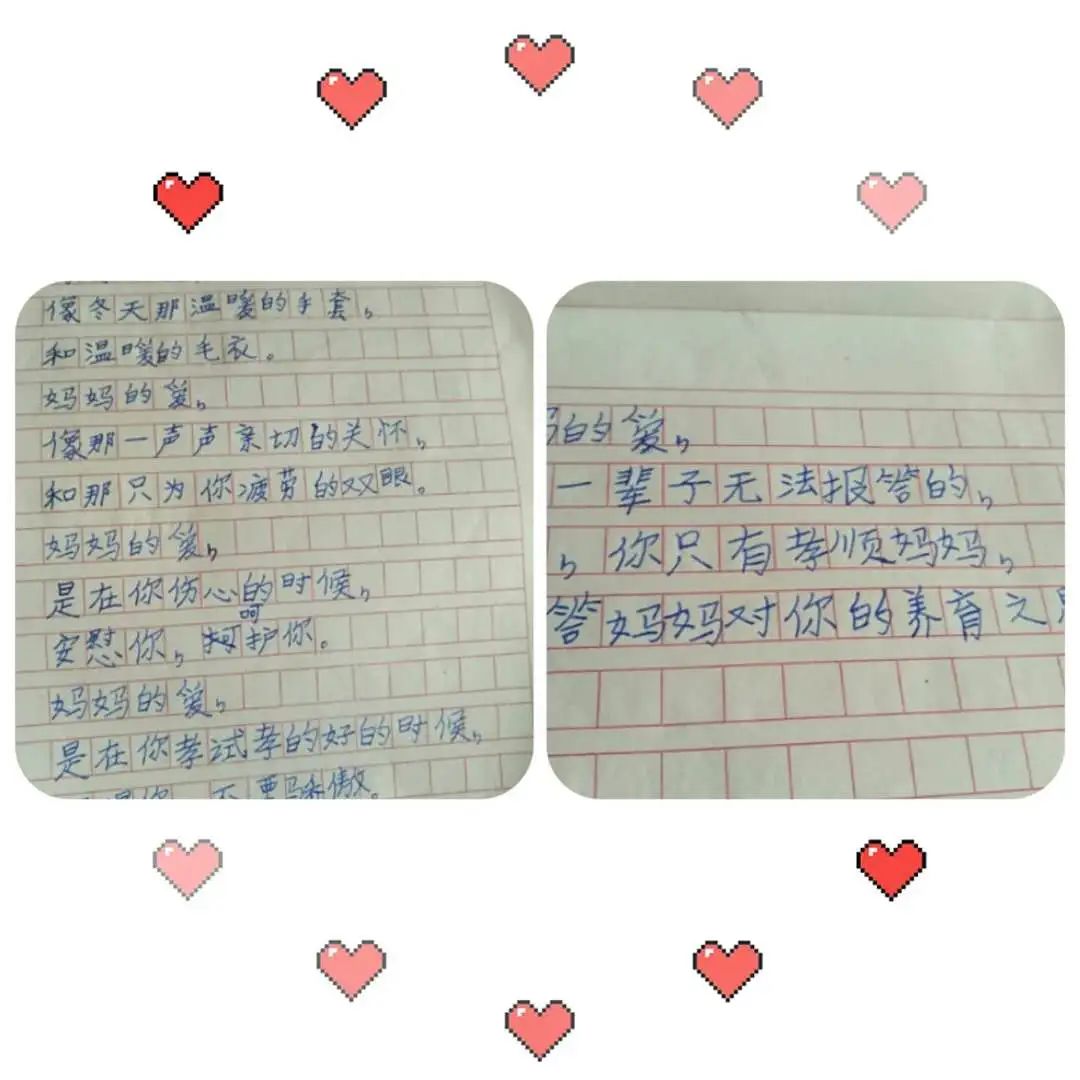 像冬天那温暖的手套，
和温暖的毛衣。
妈妈的爱，
像那一声声亲切的关怀，
和那只为你疲劳的双眼。
妈妈的爱，
是在你伤心的时候，
呵
安慰你，护你。
妈妈的爱，
是在你孝试孝的好的时候，
你，不要骄傲。
的爱，
一辈子无法报答的，
，你只有孝顺妈妈，
答妈妈对你的养育之